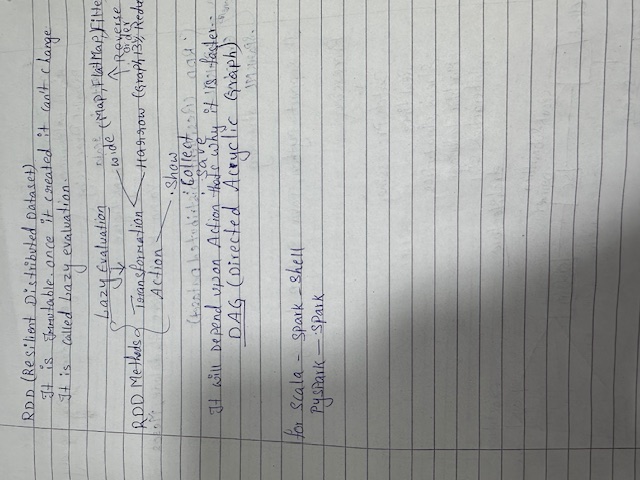 RDD (Resilient Distributed Dataset)
It is Immutable. once it created it can't change
It is called Lazy evaluation.
Lazy Evaluation
wide (Map, FlatMap, Filte
Reverse order
RDD Methods
Transformation
Narrow (Graph By, Redu
Action
Show
Collect
Save
It will Depend upon Action that's why it is faster.
DAG (Directed Acryclic Graph)
for Scala - Spark - Shell
PySpark — Spark